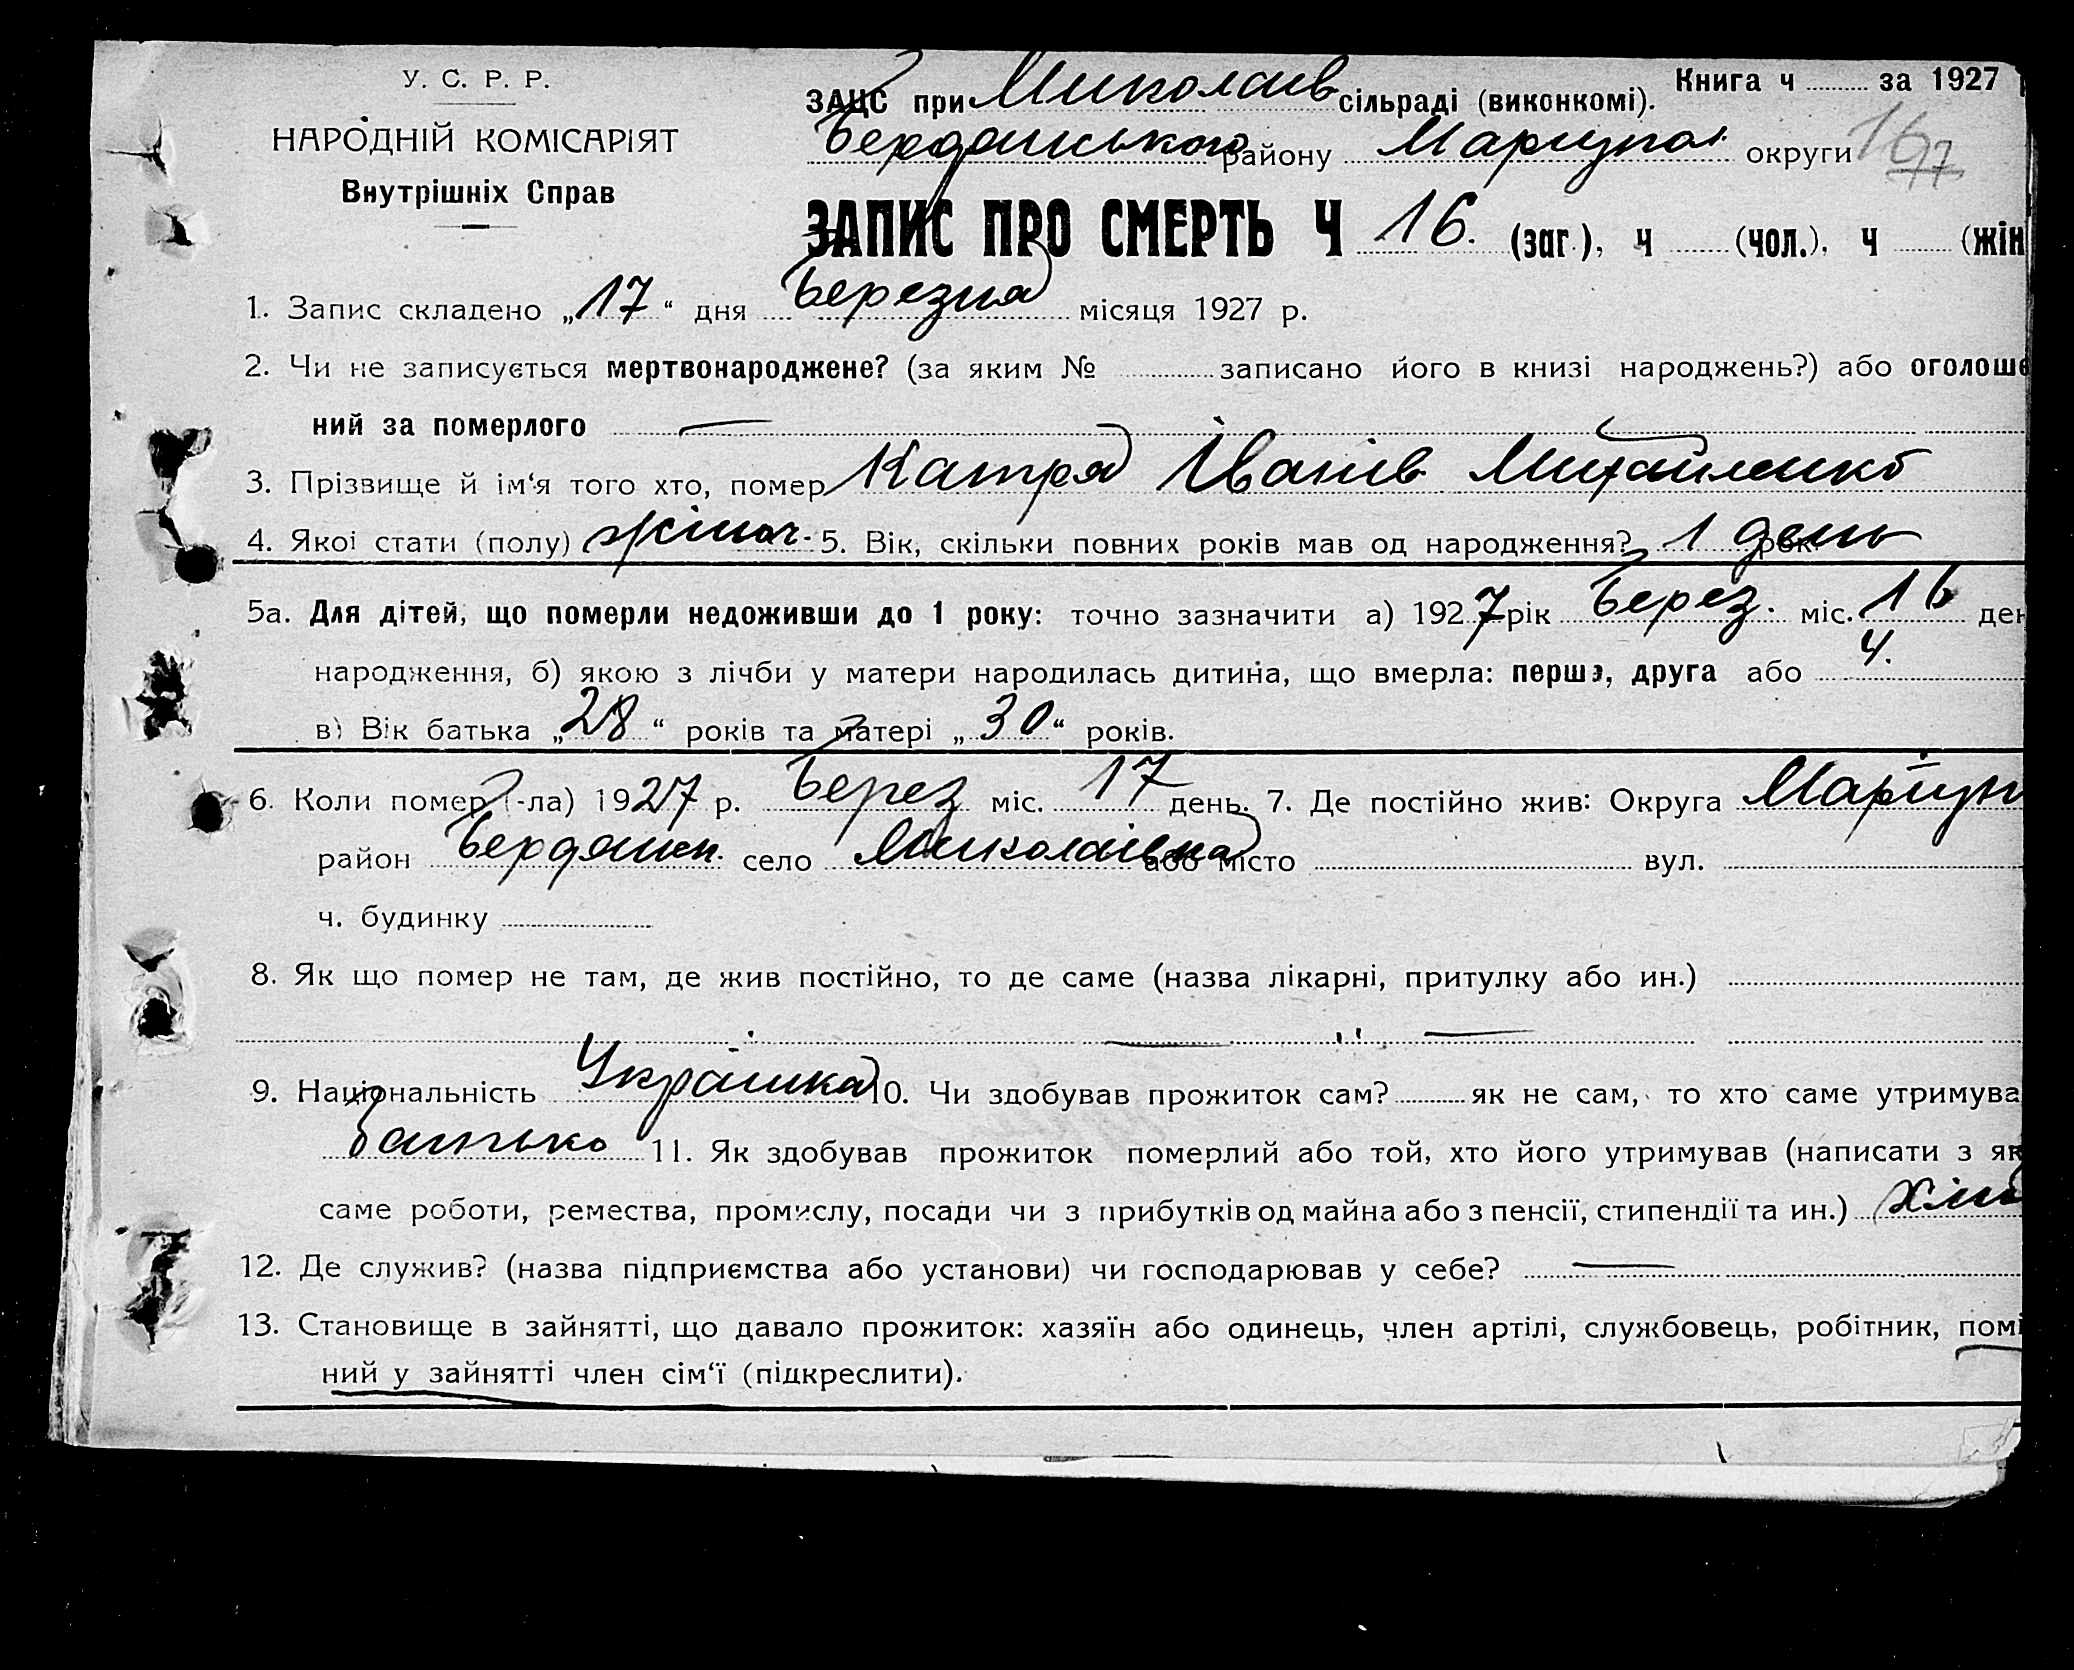 У. С. Р. Р.
НАРОДНІЙ КОМІСАРІЯТ
Внутрішніх Справ
Книга ч за 1927
ЗАЦС при Миколаїв сільраді (виконкомі).
Бердянського району Маріупол округи 16
77
ЗАПИС ПРО СМЕРТЬ Ч 16. (заг.), ч (чол.), ч (жін
1. Запис складено „17“ дня Березня місяця 1927 р.
2. Чи не записується мертвонароджене? (за яким № записано його в книзі народжень?) або оголоше
ний за померлого —
3. Прізвище й ім‘я того хто, помер Катря Іванів Михайленко
4. Якоі стати (полу) жіноч. 5. Вік, скільки повних років мав од народження? 1 день рок.
5а. Для дітей, що померли недоживши до 1 року: точно зазначити а) 1927 рік Берез. міс. 16 ден
народження, б) якою з лічби у матери народилась дитина, що вмерла: перша, друга або 4.
в) Вік батька „28“ років та матері „30“ років.
6. Коли помер (-ла) 1927 р. Берез міс. 17 день. 7. Де постійно жив: Округа Маріуп
район Бердянськ. село Миколаївка або місто вул.
ч. будинку
8. Як що помер не там, де жив постійно, то де саме (назва лікарні, притулку або ин.)
9. Національність Українка 10. Чи здобував прожиток сам? як не сам, то хто саме утримува
Батько 11. Як здобував прожиток померлий або той, хто його утримував (написати з як
саме роботи, ремества, промислу, посади чи з прибутків од майна або з пенсії, стипендії та ин.) Хліб
12. Де служив? (назва підприємства або установи) чи господарював у себе? —
13. Становище в зайнятті, що давало прожиток: хазяїн або одинець, член артілі, службовець, робітник, помі
ний у зайнятті член сім‘ї (підкреслити).